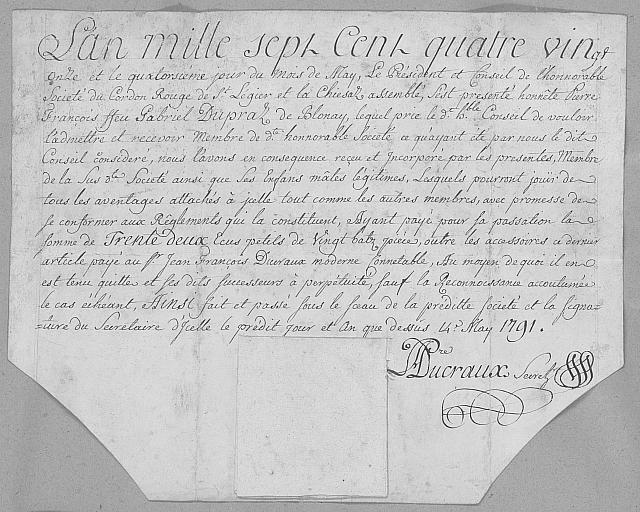 L'an mille sept Cent quatre vingt
onze et le quatorsieme jour du mois de May, Le Président et Conseil de l'honnorable
Société du Cordon Rouge de St Legier et la Chiesaz assemblé, S'est presenté honnête Pierre
François ffeu Gabriel Dupraz de Blonay, lequel prie le d.t h.ble Conseil de vouloir
l'admettre et recevoir Membre de d.te honnorable Société ce qu'ayant été par nous le dit
Conseil consideré, nous l'avons en consequence reçu et Incorporé par les presentes, Membre
de la Sus d.te Société ainsi que Ses Enfans males légitimes, Lesquels pourront jouïr de
tous les aventages attachés à jcelle tout comme les autres membres, avec promesse de
se conformer aux Règlements qui la constituent, Ayant payé pour sa passation la
somme de Trente deux Ecus petits de Vingt batz pièce, outre les accessoires ce dernier
article payé au Sr Jean François Ducraux moderne Connetable, Au moyen de quoi il en
est tenu quitte et ses dits successeurs à perpétuité, sauf la Reconnoissance accoutumée
le cas échéant, Ainsi fait et passé sous le sceau de la preditte Société et la Signa-
-ture du Secretaire d'Jcelle le prédit jour et An que dessus 14.e May 1791.
Ducraux Secret.re